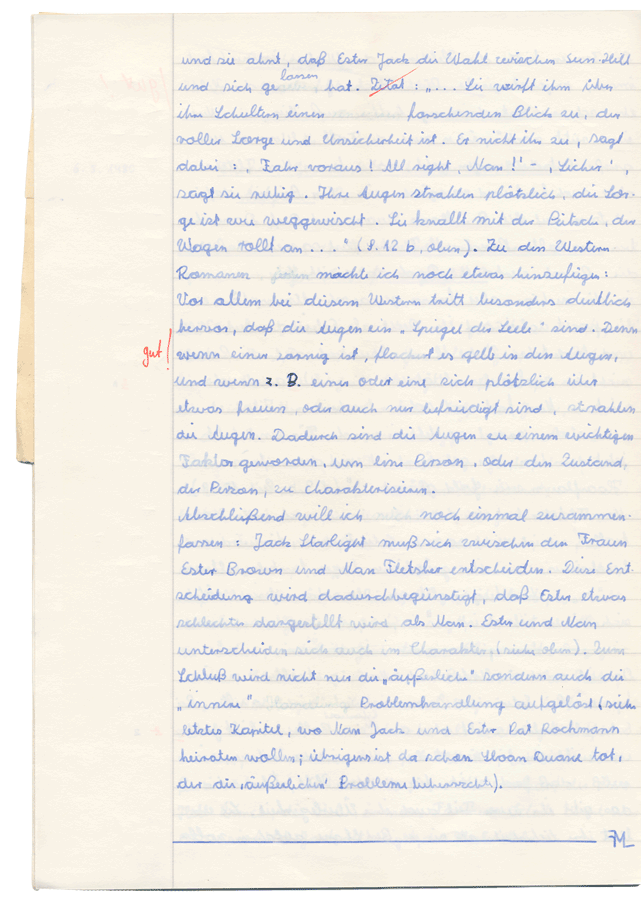 und sie ahnt, daß Ester Jack die Wahl zwischen Sun-Hill
und sich gelassen hat. Zitat: „... Sie wirft ihm über
ihre Schultern einen forschenden Blick zu, der
voller Sorge und Unsicherheit ist. Er nickt ihr zu, sagt
dabei: ‚Fahr voraus! All right, Nan!' - ‚Sicher',
sagt sie ruhig. Ihre Augen strahlen plötzlich, die Sor-
ge ist wie weggewischt. Sie knallt mit der Peitsche, der
Wagen rollt an ..." (S. 12 b, oben). Zu den Western
Romanen möchte ich noch etwas hinzufügen:
Vor allem bei diesem Western tritt besonders deutlich
hervor, daß die Augen ein „Spiegel der Seele" sind. Denn
gut!
wenn einer zornig ist, flackert es gelb in den Augen,
und wenn z. B. einer oder eine sich plötzlich über
etwas freuen, oder auch nur befriedigt sind, strahlen
die Augen. Dadurch sind die Augen zu einem wichtigen
Faktor geworden, um eine Person, oder den Zustand,
der Person, zu charakterisieren.
Abschließend will ich noch einmal zusammen-
fassen: Jack Starlight muß sich zwischen den Frauen
Ester Brown und Nan Fletsher entscheiden. Diese Ent-
scheidung wird dadurch begünstigt, daß Ester etwas
schlechter dargestellt wird als Nan. Ester und Nan
unterscheiden sich auch im Charakter, (siehe oben). Zum
Schluß wird nicht nur die „äußerliche" sondern auch die
„innere" Problemhandlung aufgelöst (siehe
letztes Kapitel, wo Nan Jack und Ester Pat Rochmann
heiraten wollen; übrigens ist da schon Sloan Duane tot,
der die ‚äußerlichen' Probleme beherrschte).